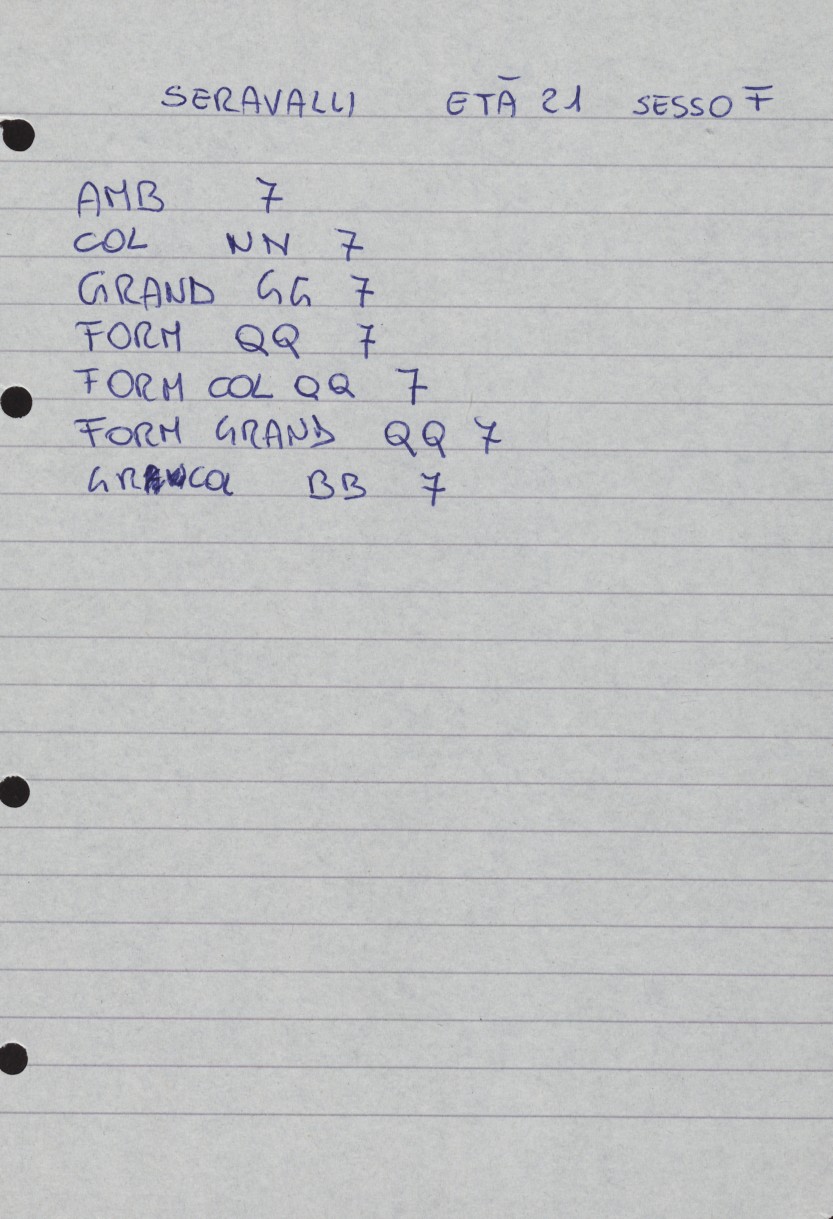 SERAVALLI ETÀ 21 SESSO F
AMB 7
COL NN 7
GRAND GG 7
FORM QQ 7
FORM COL QQ 7
FORM GRAND QQ 7
BB 7